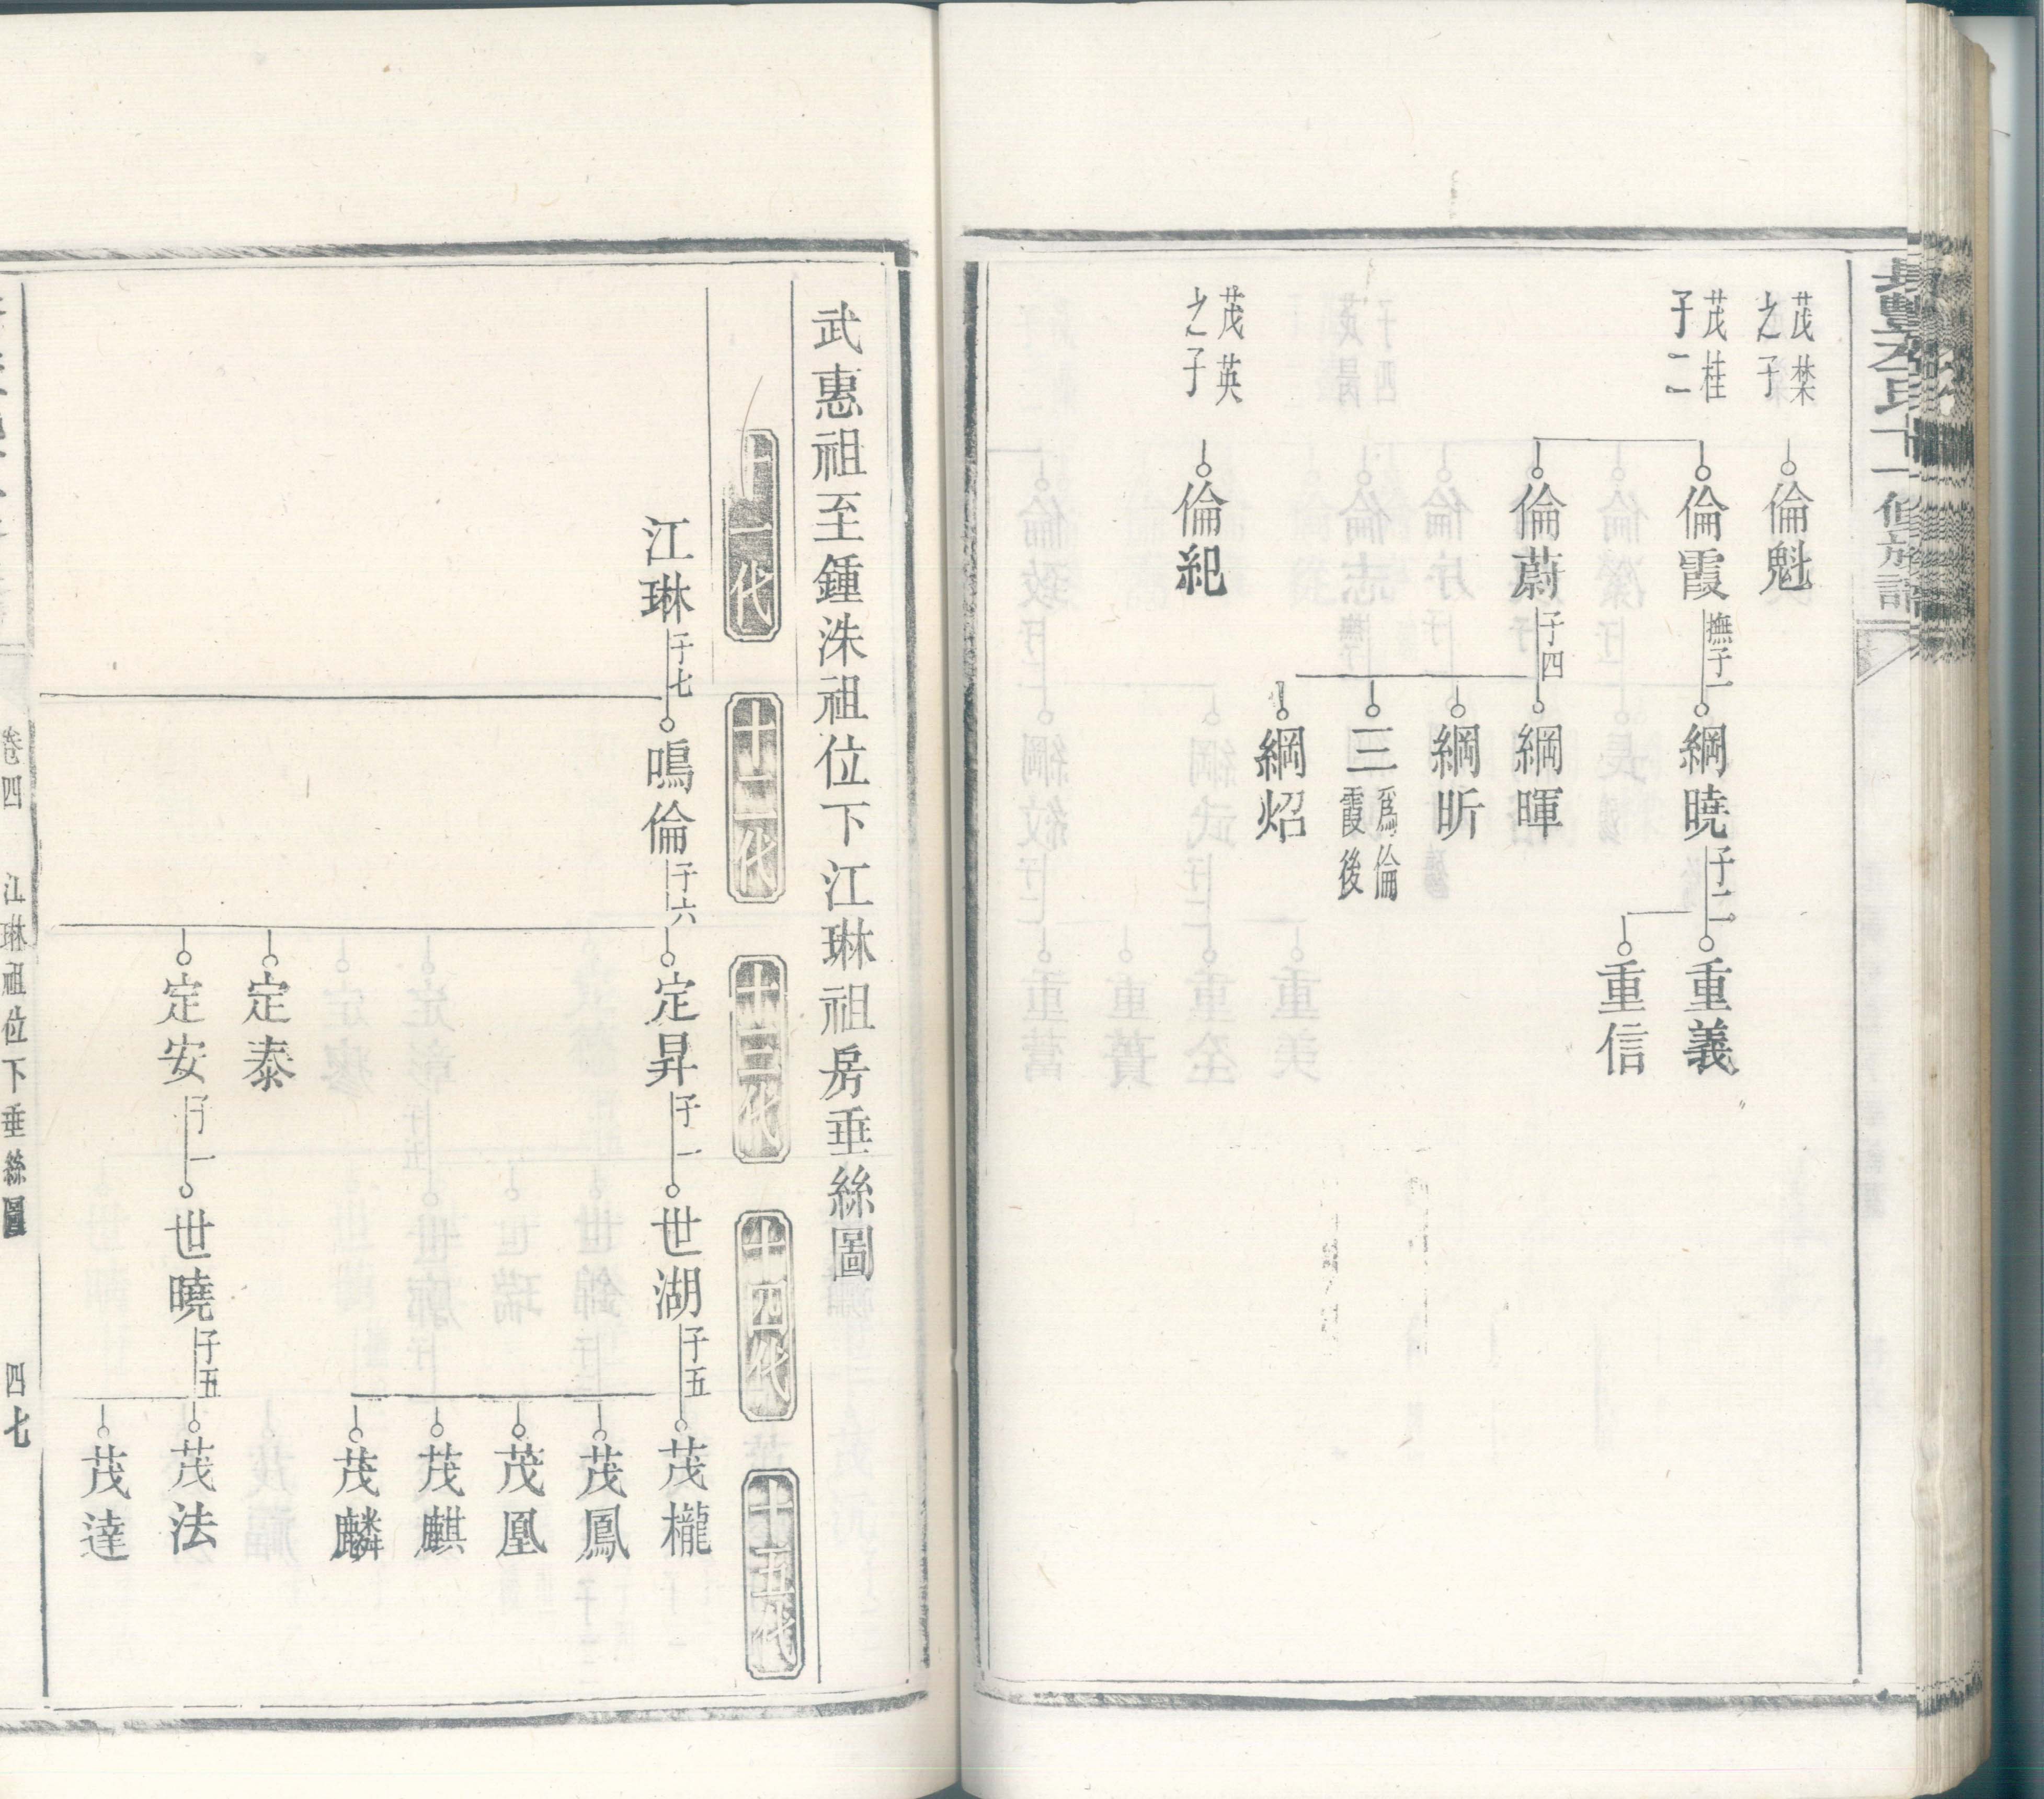 茂桂
子二
茂
之子
茂英
之子
倫魁
倫霞 撫子一
倫蔚 子四
倫紀
綱曉 子二
綱暉
綱昕
三 為倫霞後
綱炤
重義
重信
武惠祖至鍾洙祖位下江琳祖房垂絲圖
十一代
十二代
十三代
十四代
十五代
江琳 子七
鳴倫 子六
定昇 子一
定泰
定安 子一
世湖 子五
世曉 子五
茂櫳
茂鳳
茂凰
茂麒
茂麟
茂法
茂達
卷四
江琳祖位下垂絲圖
四七